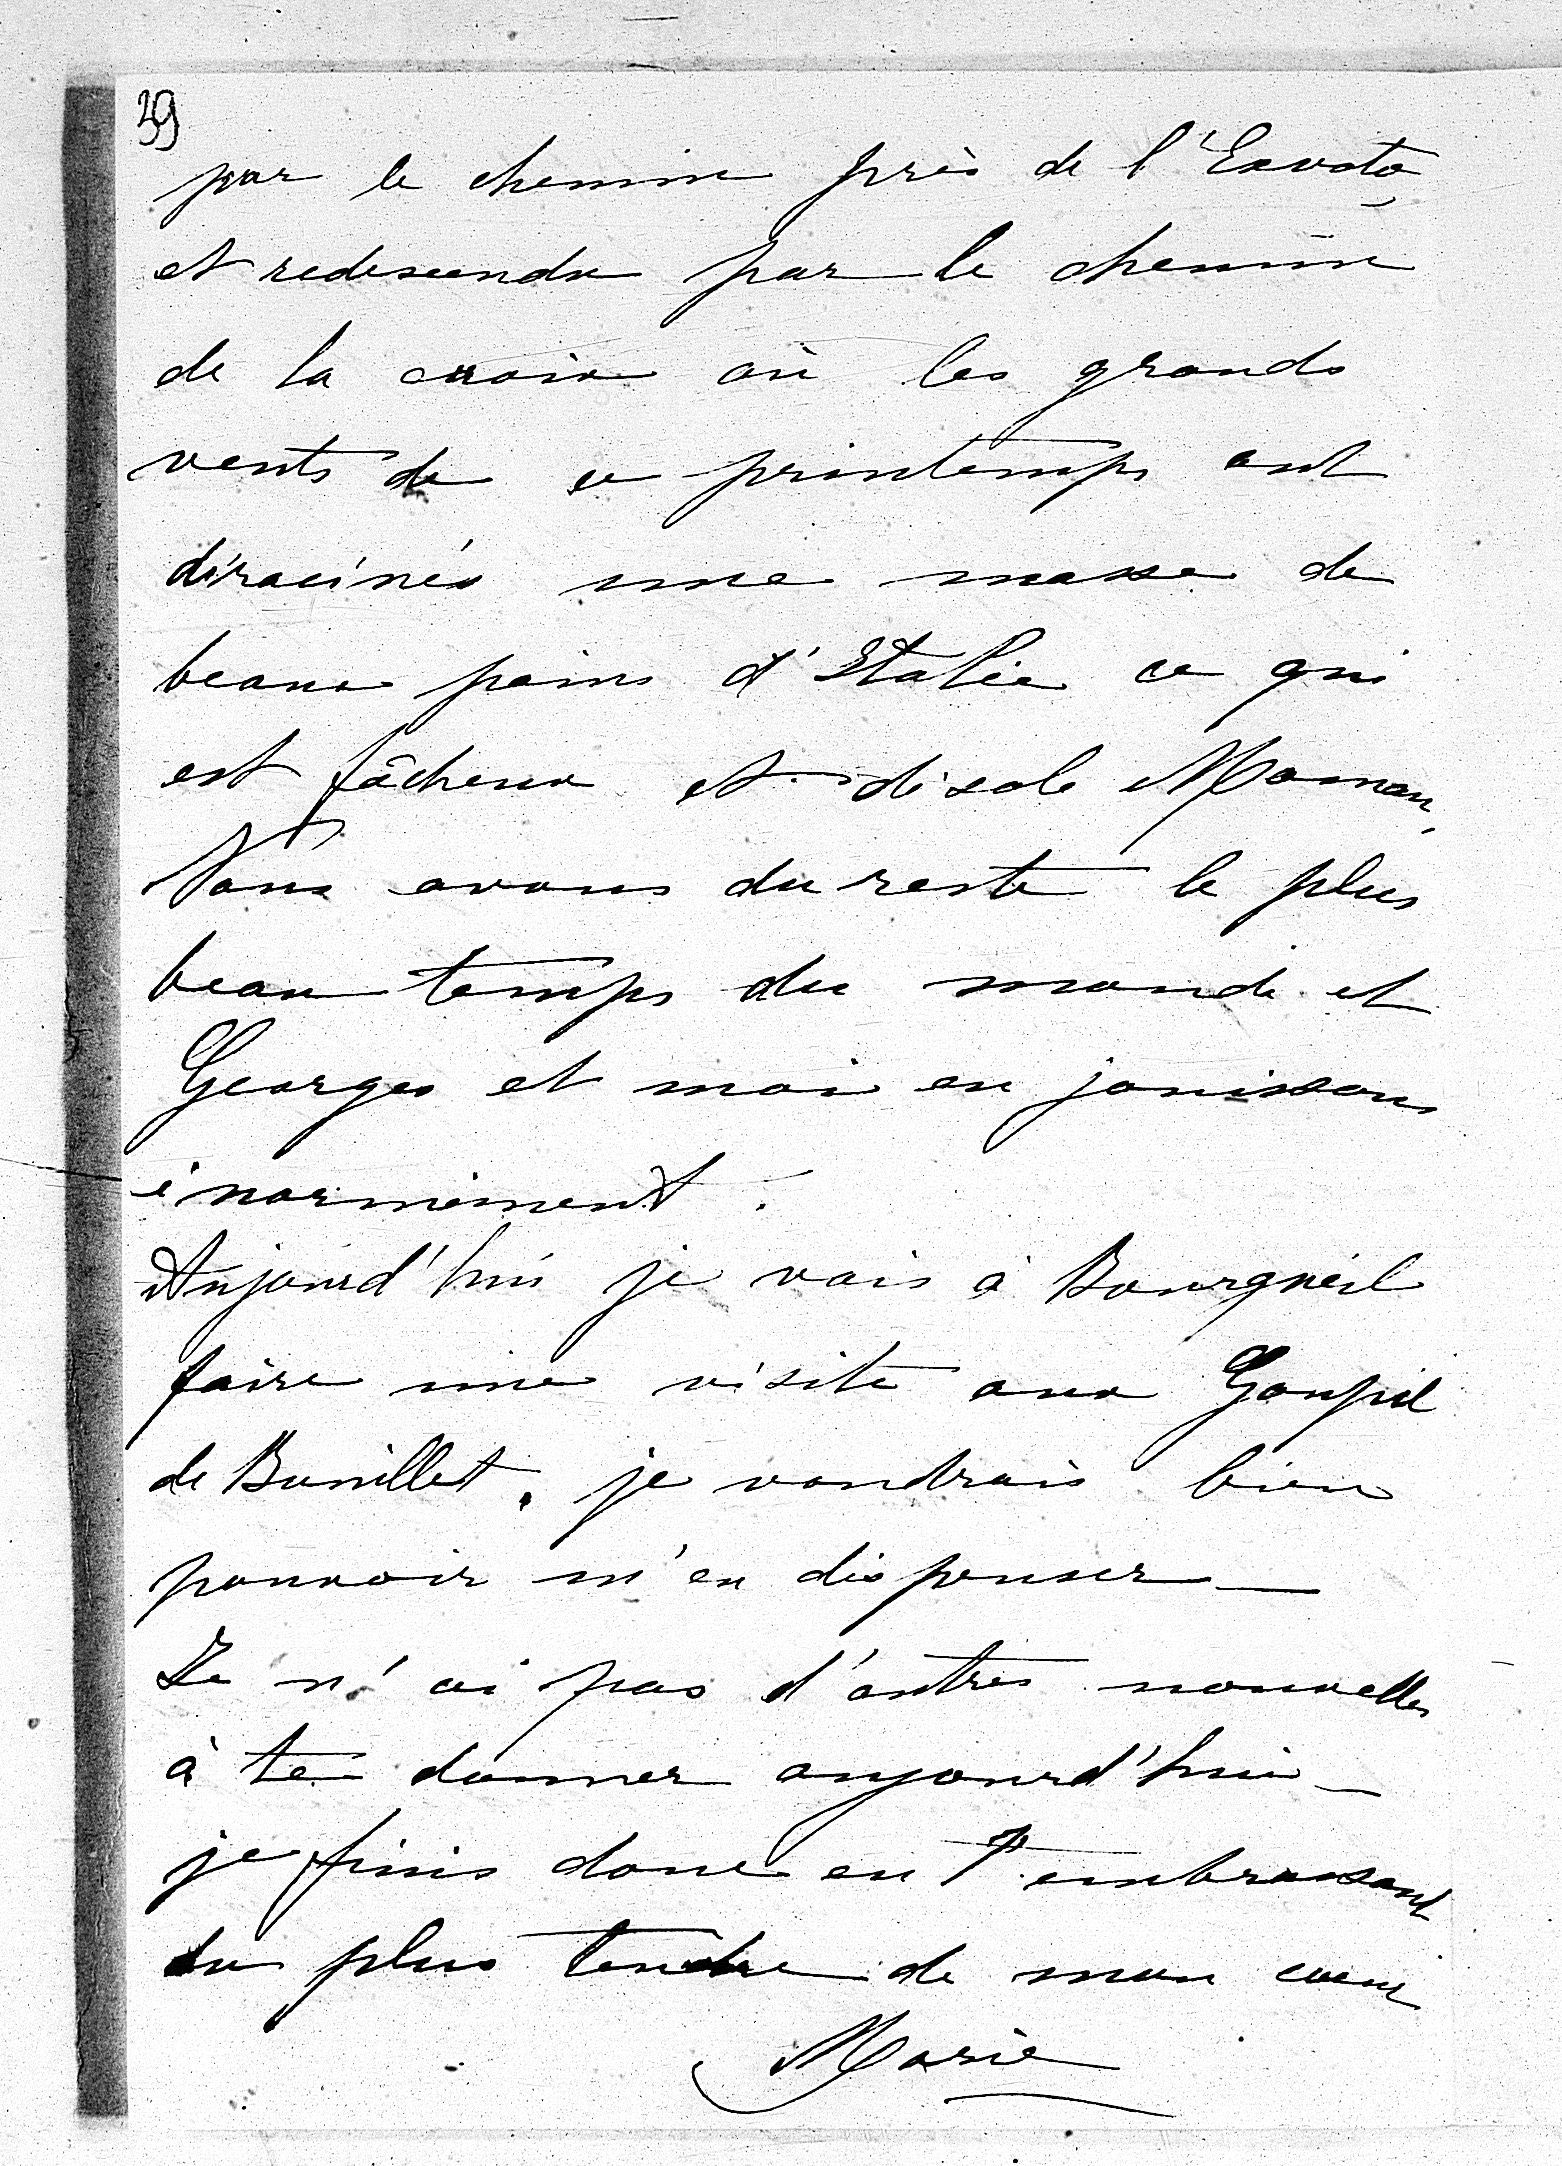 39
par le chemin près de l'Exvoto,
et redescendu par le chemin
de la croix où les grands
vents de ce printemps ont
déracinés une masse de
beaux pains d'Italie ce qui
est fâcheux et désole Maman,
Nous avons du reste le plus
beau temps du monde et
Georges et moi en jouissons
énormément.
Aujourd'hui je vais à Bourgueil
faire une visite aux Goupil
de Bouillet. je voudrais bien
pouvoir m'en dispenser —
Je n'ai pas d'autres nouvelles
à te donner aujourd'hui —
je finis donc en t'embrassant
du plus tendre de mon cœur
Marie